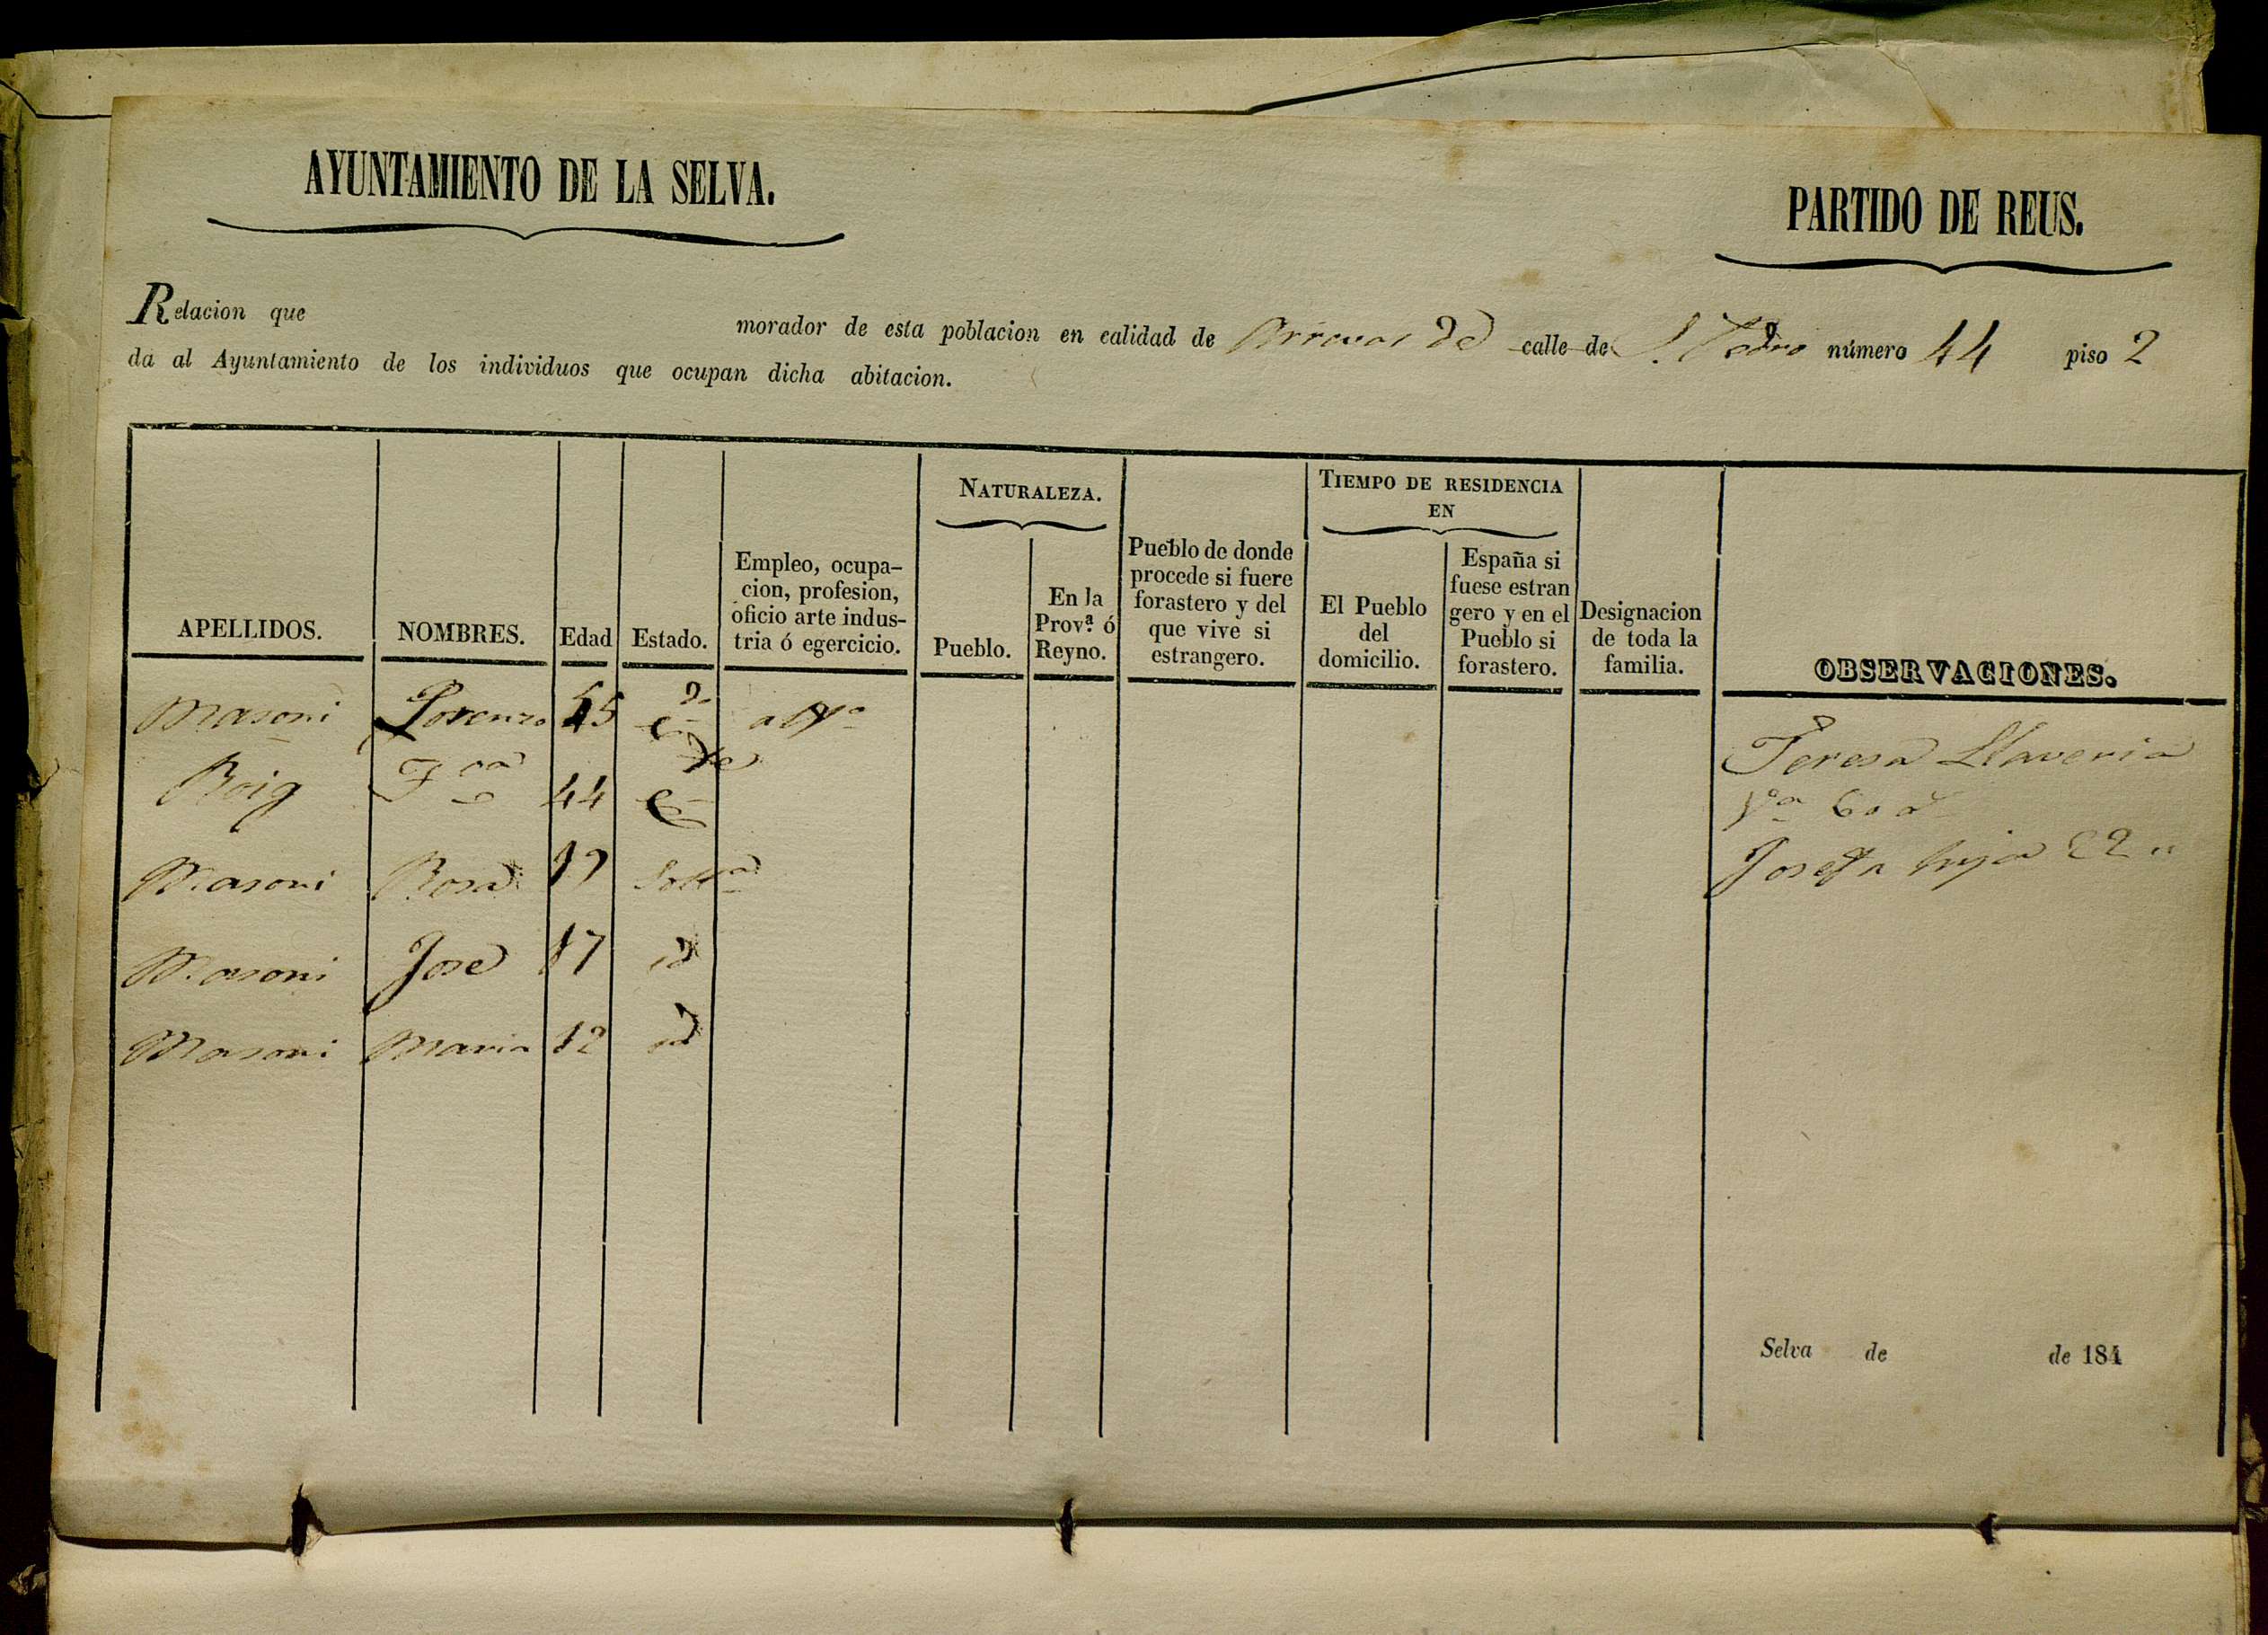 AYUNTAMIENTO DE LA SELVA.
PARTIDO DE REUS.
Relacion que morador de esta poblacion en calidad de Arraval de calle de S. Pedro número 44 piso 2
da al Ayuntamiento de los individuos que ocupan dicha abitacion.
APELLIDOS. NOMBRES. Edad Estado. Empleo, ocupa-
cion, profesion,
oficio arte indus-
tria ó egercicio.
NATURALEZA.
Pueblo. En la
Prov.ª ó
Reyno.
Pueblo de donde
procede si fuere
forastero y del
que vive si
estrangero.
TIEMPO DE RESIDENCIA
EN
El Pueblo
del
domicilio.
España si
fuese estran
gero y en el
Pueblo si
forastero.
Designacion
de toda la
familia.
OBSERVACIONES.
Masoni Lorenzo 45
Roig Fca 44
Masoni Rosa 19 Solta
Masoni Jose 17 id
Masoni Maria 12 id
Teresa Llaveria
Va 60 a
Josefa hija 22 "
Selva de de 184